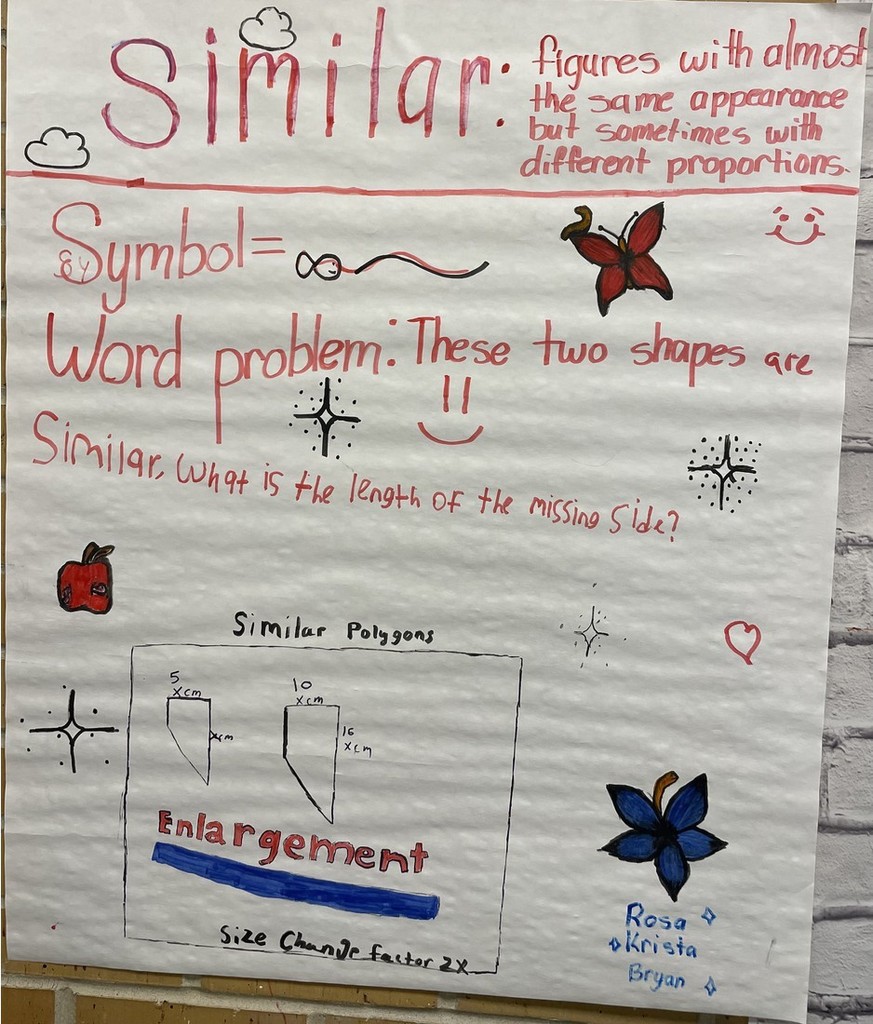 Similar:
figures with almost
the same appearance
but sometimes with
different proportions.
Symbol=
Word problem: These two shapes are
Similar, What is the length of the missing side?
Similar Polygons
5
xcm
xcm
10
xcm
16
xcm
Enlargement
Size Change factor 2x
Rosa
Krista
Bryan